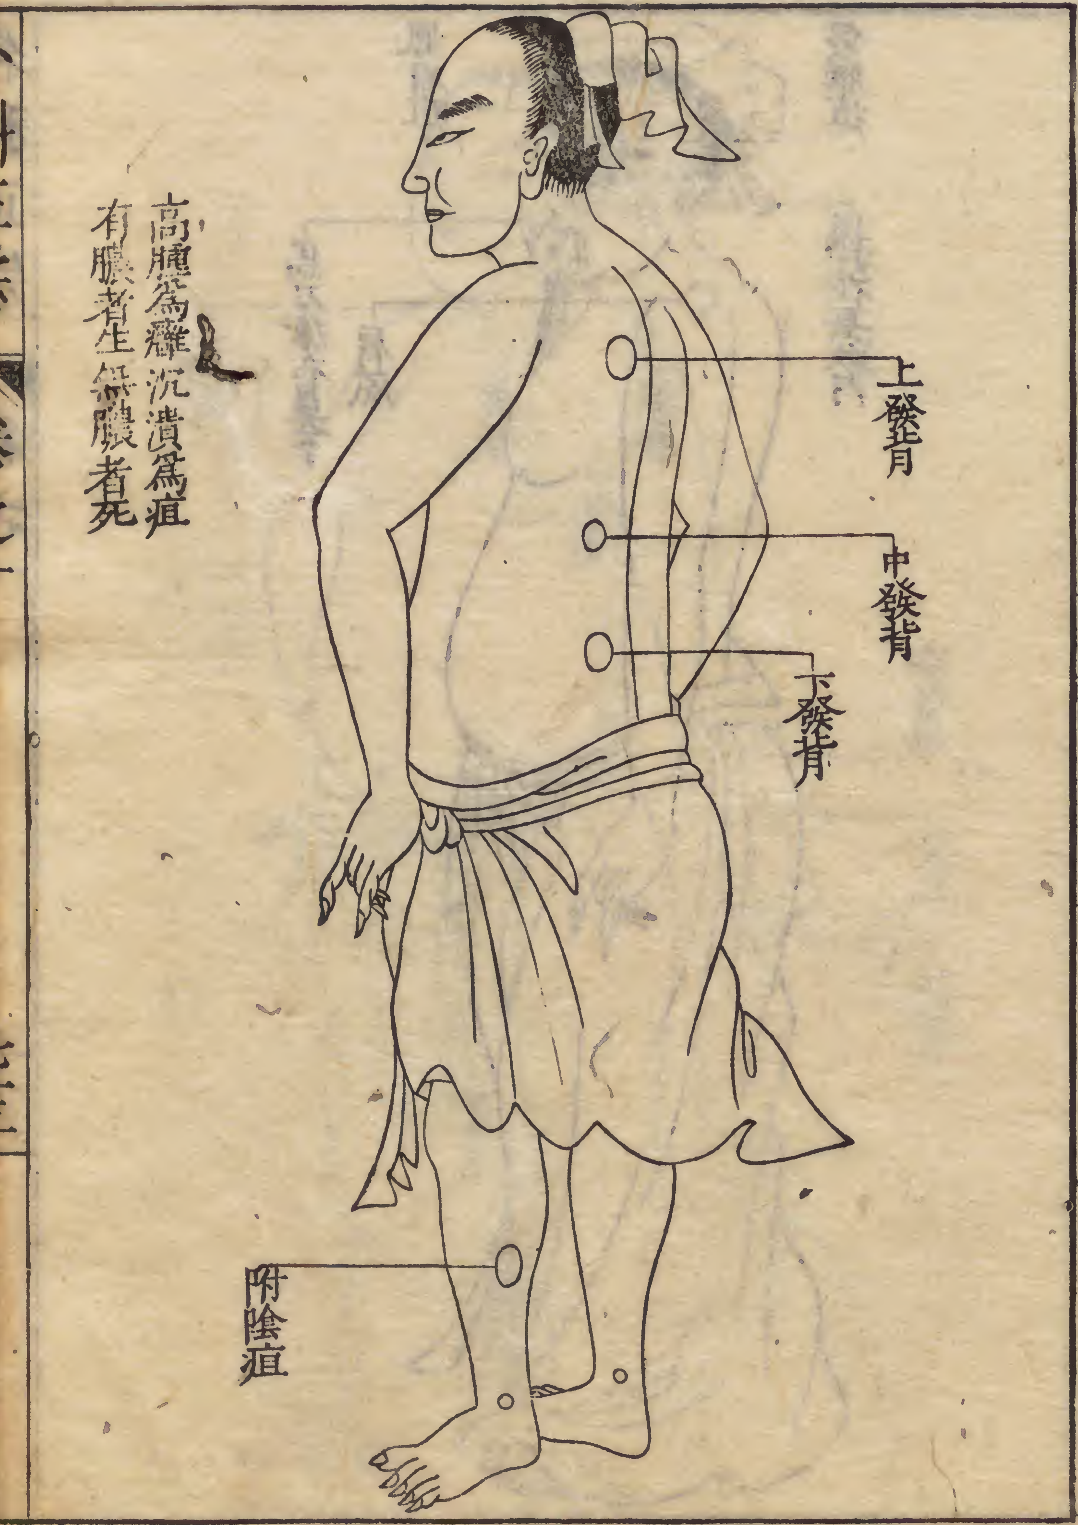 上發背
中發背
下發背
高腫為癰沉潰為疽
有膿者生無膿者死
附陰疽